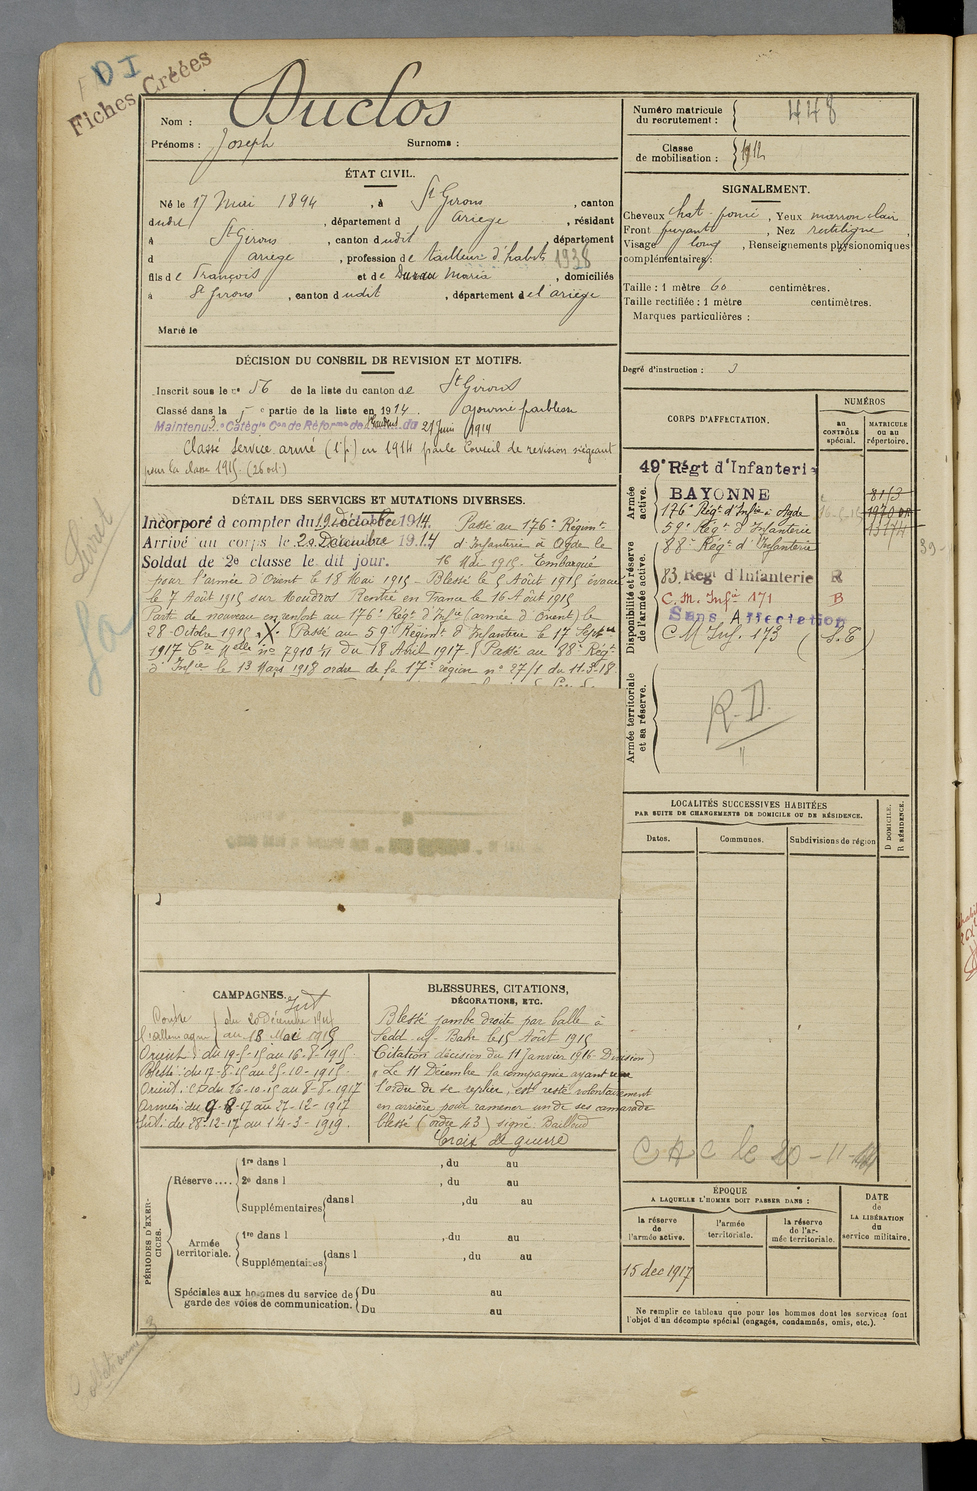 DI
Fiches Créées
Nom : Duclos
Prénoms : Joseph Surnoms :
Numéro matricule
du recrutement : 448
Classe
de mobilisation : 1912
ÉTAT CIVIL.
Né le 17 Mai 1894, à St Girons, canton
dudit, département d Ariège, résidant
à St Girons, canton dudit, département
d ariege, profession de tailleur d'habits 1938
fils de François et de Maria, domiciliés
à St Girons, canton dudit, département de l'ariège
Marié le
SIGNALEMENT.
Cheveux chat. foncé, Yeux marron clair
Front fuyant, Nez rectiligne,
Visage long, Renseignements physionomiques
complémentaires :
Taille : 1 mètre 60 centimètres.
Taille rectifiée : 1 mètre centimètres.
Marques particulières :
Degré d'instruction : 3
DÉCISION DU CONSEIL DE REVISION ET MOTIFS.
Inscrit sous le n° 56 de la liste du canton de St Girons
Classé dans la 5e partie de la liste en 1914. ajourné faiblesse
Maintenu 3e Catégie Con de Réforme de du 21 Juin 1914
Classé Service armé (1e p) en 1914 par le Conseil de revision siégeant
pour la classe 1915. (26 oct.)
CORPS D'AFFECTATION.
NUMÉROS
au
CONTRÔLE
spécial.
MATRICULE
ou au
répertoire.
Armée
active.
49e Régt d'Infanterie
BAYONNE 8173
176e Régt d'Infie à Agde
59e Régt d'Infanterie
Disponibilité et réserve
de l'armée active.
88e Régt d'Infanterie
83. Régt d'Infanterie R
C.M. Infie 171 B
Sans Affectation
C M Inf. 173 (S.E)
Armée territoriale
et sa réserve.
R.D.
39-
DÉTAIL DES SERVICES ET MUTATIONS DIVERSES.
Incorporé à compter du 19 1914. Passé au 176e Régimt
Arrivé au corps le 20 Décembre 1914 d'Infanterie à Agde le
Soldat de 2e classe le dit jour. 16 Mai 1915. Embarqué
pour l'armée d'Orient le 18 Mai 1915 - Blessé le 5 Août 1915 évacué
le 7 Août 1915 sur Moudros Rentré en France le 16 Août 1915
Parti de nouveau en renfort au 176e Régt d'Infie (armée d'Orient) le
28 Octobre 1915 X. Passé au 59e Régimt d'Infanterie le 17 Septbre
1917 Cre Melle no 7910 du 18 Avril 1917. Passé au 88e Régt
d'Infie le 13 Mars 1918 ordre de la 17e région no 27/1 du 11.3.18.
LOCALITÉS SUCCESSIVES HABITÉES
PAR SUITE DE CHANGEMENTS DE DOMICILE OU DE RÉSIDENCE.
Dates.
Communes.
Subdivisions de région
D DOMICILE.
R RÉSIDENCE.
CAMPAGNES. Int
Contre du 20 Décembre 1914
l'allemagne au 18 Mai 1915
Orient : du 19-5-15 au 16-8-1915.
Blessé : du 17-8-15 au 25-10-1915.
Orient : CD du 26-10-15 au 8-8-1917
Armées : du 9-8-17 au 27-12-1917
Int : du 28-12-17 au 14-3-1919.
BLESSURES, CITATIONS,
DÉCORATIONS, ETC.
Blessé jambe droite par balle à
Sedd-ul-Bahr le 5 Août 1915
Citation décision du 11 Janvier 1916 Division)
"Le 11 Décembre la compagnie ayant reçu
l'ordre de se replier, est resté volontairement
en arrière pour ramener un de ses camarade
blessé (ordre 43) signé Bailloud
Croix de guerre
C A C le 20-11-
PÉRIODES D'EXERCICES.
Réserve....
1re dans l , du au
2e dans l , du au
Supplémentaires dans l , du au
Armée
territoriale.
1re dans l , du au
Supplémentaires dans l , du au
Spéciales aux hommes du service de
garde des voies de communication.
Du au
Du au
ÉPOQUE
A LAQUELLE L'HOMME DOIT PASSER DANS :
la réserve
de
l'armée active.
l'armée
territoriale.
la réserve
de l'ar-
mée territoriale.
DATE
de
LA LIBÉRATION
du
service militaire.
15 dec 1917
Ne remplir ce tableau que pour les hommes dont les services font
l'objet d'un décompte spécial (engagés, condamnés, omis, etc.).